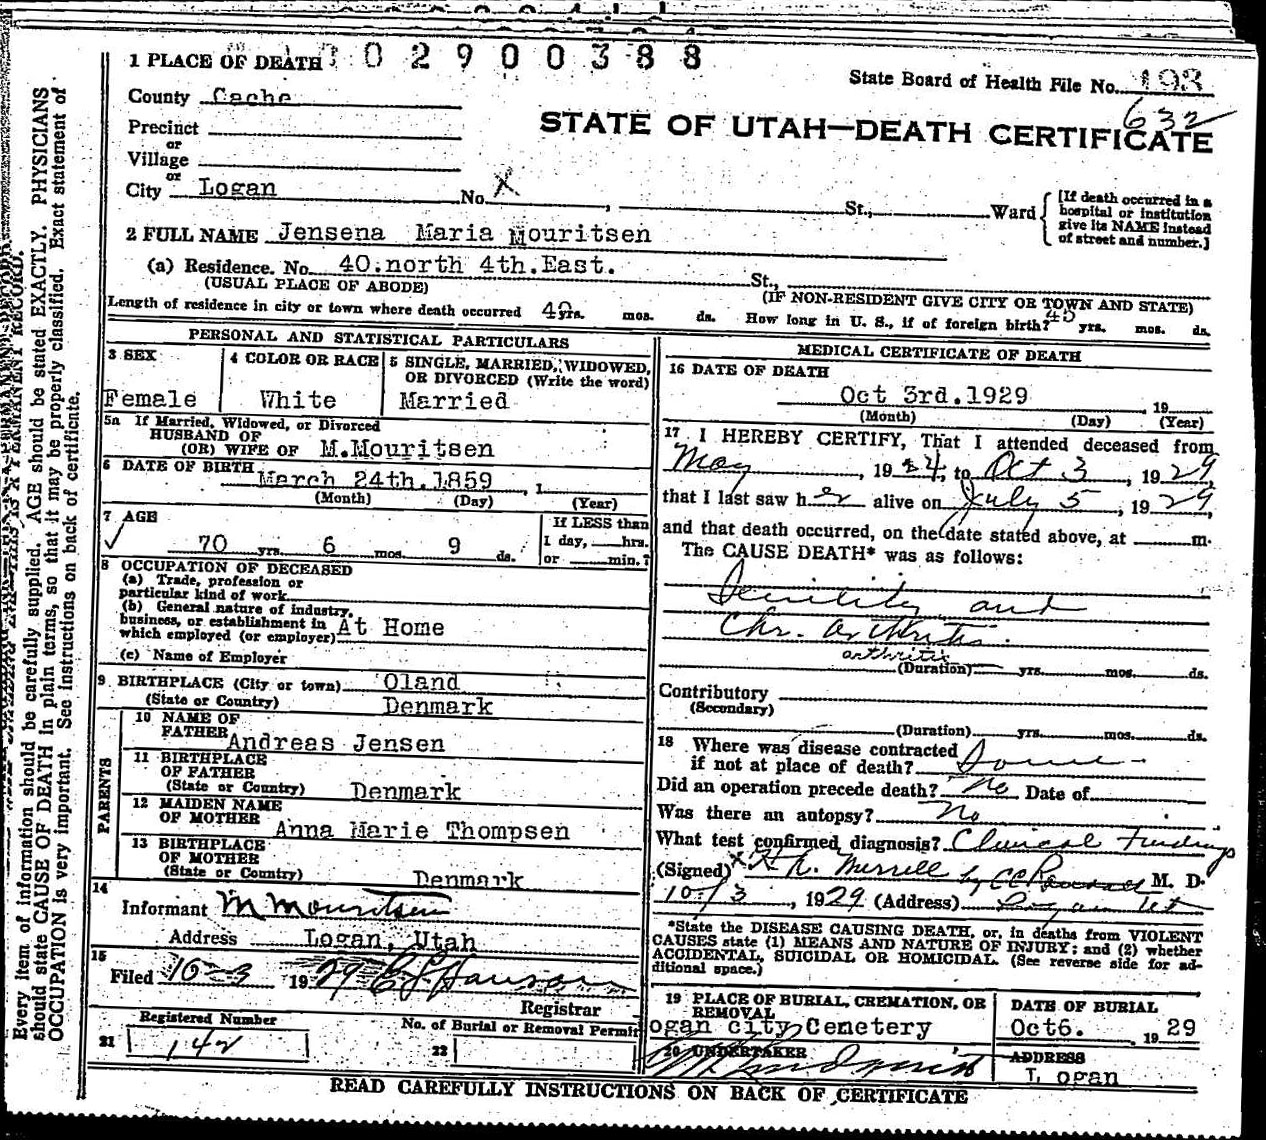 0 2 9 0 0 3 8 8
1 PLACE OF DEATH
State Board of Health File No. 193
632
County Cache
STATE OF UTAH—DEATH CERTIFICATE
Precinct
or
Village
or
City Logan No. X St., Ward
[If death occurred in a
hospital or institution
give its NAME instead
of street and number.]
2 FULL NAME Jensena Maria Mouritsen
(a) Residence. No. 40.north 4th.East. St.,
(USUAL PLACE OF ABODE)
(IF NON-RESIDENT GIVE CITY OR TOWN AND STATE)
Length of residence in city or town where death occurred 40 yrs. mos. ds. How long in U. S., if of foreign birth? 45 yrs. mos. ds.
PERSONAL AND STATISTICAL PARTICULARS
3 SEX
Female
4 COLOR OR RACE
White
5 SINGLE, MARRIED, WIDOWED,
OR DIVORCED (Write the word)
Married
5a If Married, Widowed, or Divorced
HUSBAND OF
(OR) WIFE OF M.Mouritsen
6 DATE OF BIRTH March 24th.1859, 1
(Month) (Day) (Year)
7 AGE
70 yrs. 6 mos. 9 ds.
If LESS than
1 day, hrs.
or min.?
8 OCCUPATION OF DECEASED
(a) Trade, profession or
particular kind of work
(b) General nature of industry,
business, or establishment in
which employed (or employer) At Home
(c) Name of Employer
9 BIRTHPLACE (City or town) Oland
(State or Country) Denmark
PARENTS
10 NAME OF
FATHER Andreas Jensen
11 BIRTHPLACE
OF FATHER
(State or Country) Denmark
12 MAIDEN NAME
OF MOTHER Anna Marie Thompsen
13 BIRTHPLACE
OF MOTHER
(State or Country) Denmark
14
Informant M Mouritsen
Address Logan, Utah
15
Filed 10-3 1929
Registrar
Registered Number
21 142
No. of Burial or Removal Permit
22
MEDICAL CERTIFICATE OF DEATH
16 DATE OF DEATH
Oct 3rd.1929, 19
(Month) (Day) (Year)
17 I HEREBY CERTIFY, That I attended deceased from
May, 19 24, to Oct 3, 1929
that I last saw her alive on July 5, 1929,
and that death occurred, on the date stated above, at m.
The CAUSE DEATH* was as follows:
Senility and
Chr. Arthritis.
arthritis
(Duration) yrs. mos. ds.
Contributory
(Secondary)
(Duration) yrs. mos. ds.
18 Where was disease contracted
if not at place of death?
Did an operation precede death? No Date of
Was there an autopsy? No
What test confirmed diagnosis? Clinical Findings
(Signed) x H R. Merrell by M. D.
10/3, 1929 (Address) Logan Ut
*State the DISEASE CAUSING DEATH, or, in deaths from VIOLENT
CAUSES state (1) MEANS AND NATURE OF INJURY; and (2) whether
ACCIDENTAL, SUICIDAL OR HOMICIDAL. (See reverse side for ad-
ditional space.)
19 PLACE OF BURIAL, CREMATION, OR
REMOVAL
ogan city Cemetery
DATE OF BURIAL
Oct6. 1929
20 UNDERTAKER
ADDRESS
Logan
READ CAREFULLY INSTRUCTIONS ON BACK OF CERTIFICATE
Every item of information should be carefully supplied. AGE should be stated EXACTLY. PHYSICIANS
should state CAUSE OF DEATH in plain terms, so that it may be properly classified. Exact statement of
OCCUPATION is very important. See instructions on back of certificate.